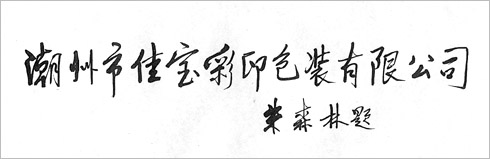 潮州市佳宝彩印包装有限公司
朱森林题